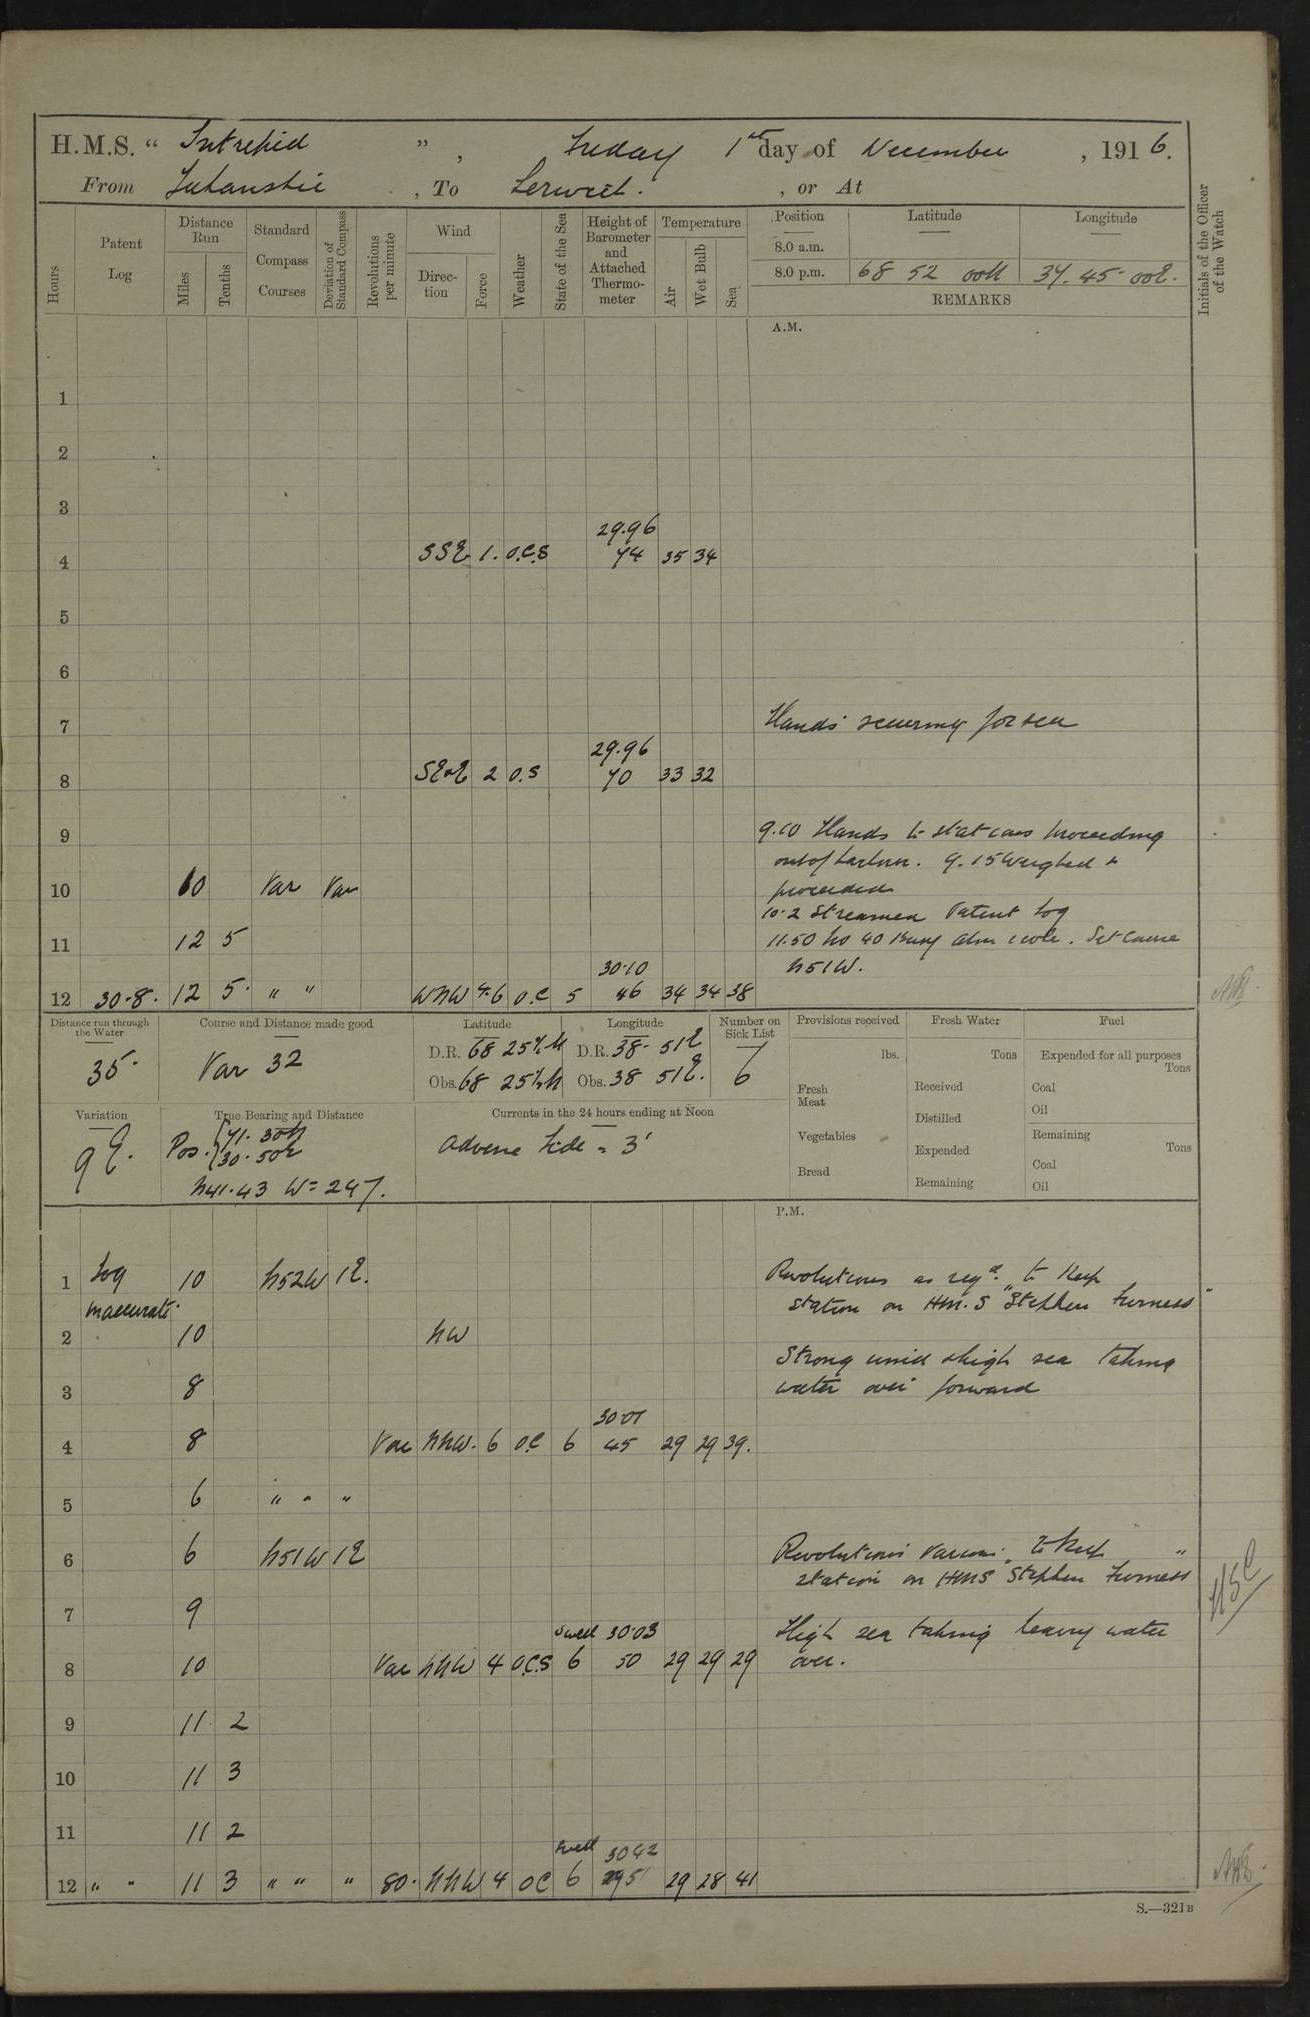 H.M.S. “ Intrepid ” , Friday 1st day of December , 1916.
From Iukanskie , To Lerwick. , or At
Hours
Patent Log
Distance Run
Miles
Tenths
Standard Compass Courses
Deviation of Standard Compass
Revolutions per minute
Wind
Direction
Force
Weather
State of the Sea
Height of Barometer and Attached Thermometer
Temperature
Air
Wet Bulb
Sea
Position Latitude Longitude
8.0 a.m.
8.0 p.m. 68 52 00N 37. 45 00E.
REMARKS
Initials of the Officer of the Watch
A.M.
1
2
3
29.96
4 SSE 1. o.c.s 74 35 34
5
6
7 Hands securing for sea
29.96
8 SE×E 2 o.s 70 33 32
9 9.10 Hands to stations proceeding
out of harbour. 9.15 Weighed &
10 10 Var Var proceeded
10.2 Streamed Patent Log
11 12 5 11.50 No 40 Buoy abm 1 cable. Set Course
30.10 N51W.
12 30.8. 12 5. " " WNW 4.6 o.c 5 46 34 34 38
Distance run through the Water
35.
Course and Distance made good
Var 32
Latitude
D.R. 68 25½N
Obs. 68 25½N
Longitude
D.R. 38. 51E
Obs. 38 51E.
Number on Sick List
6
Provisions received
lbs.
Fresh Meat
Vegetables
Bread
Fresh Water
Tons
Received
Distilled
Expended
Remaining
Fuel
Expended for all purposes
Tons
Coal
Oil
Remaining
Tons
Coal
Oil
Variation
9E.
True Bearing and Distance
Pos. { 71. 30N
30. 50E
N41.43 W = 247.
Currents in the 24 hours ending at Noon
Adverse tide = 3'
P.M.
1 Log 10 N52W 1E. Revolutions as reqd. to keep
inaccurate. station on H.M.S "Stephen Furness"
2 10 NW
Strong wind & high sea taking
3 8 water over forward
30.01
4 8 Var NNW. 6 o.c 6 45 29 29 39.
5 6 " " "
6 6 N51W 1E Revolutions various to keep
station on HMS "Stephen Furness"
7 9
Swell 30.03 High sea taking heavy water
8 10 Var NNW 4 o.c.s 6 50 29 29 29 over.
9 11 2
10 11 3
11 11 2
Swell 30.42
12 " " 11 3 " " " 80. NNW 4 oc 6 29 28 41
S.—321B